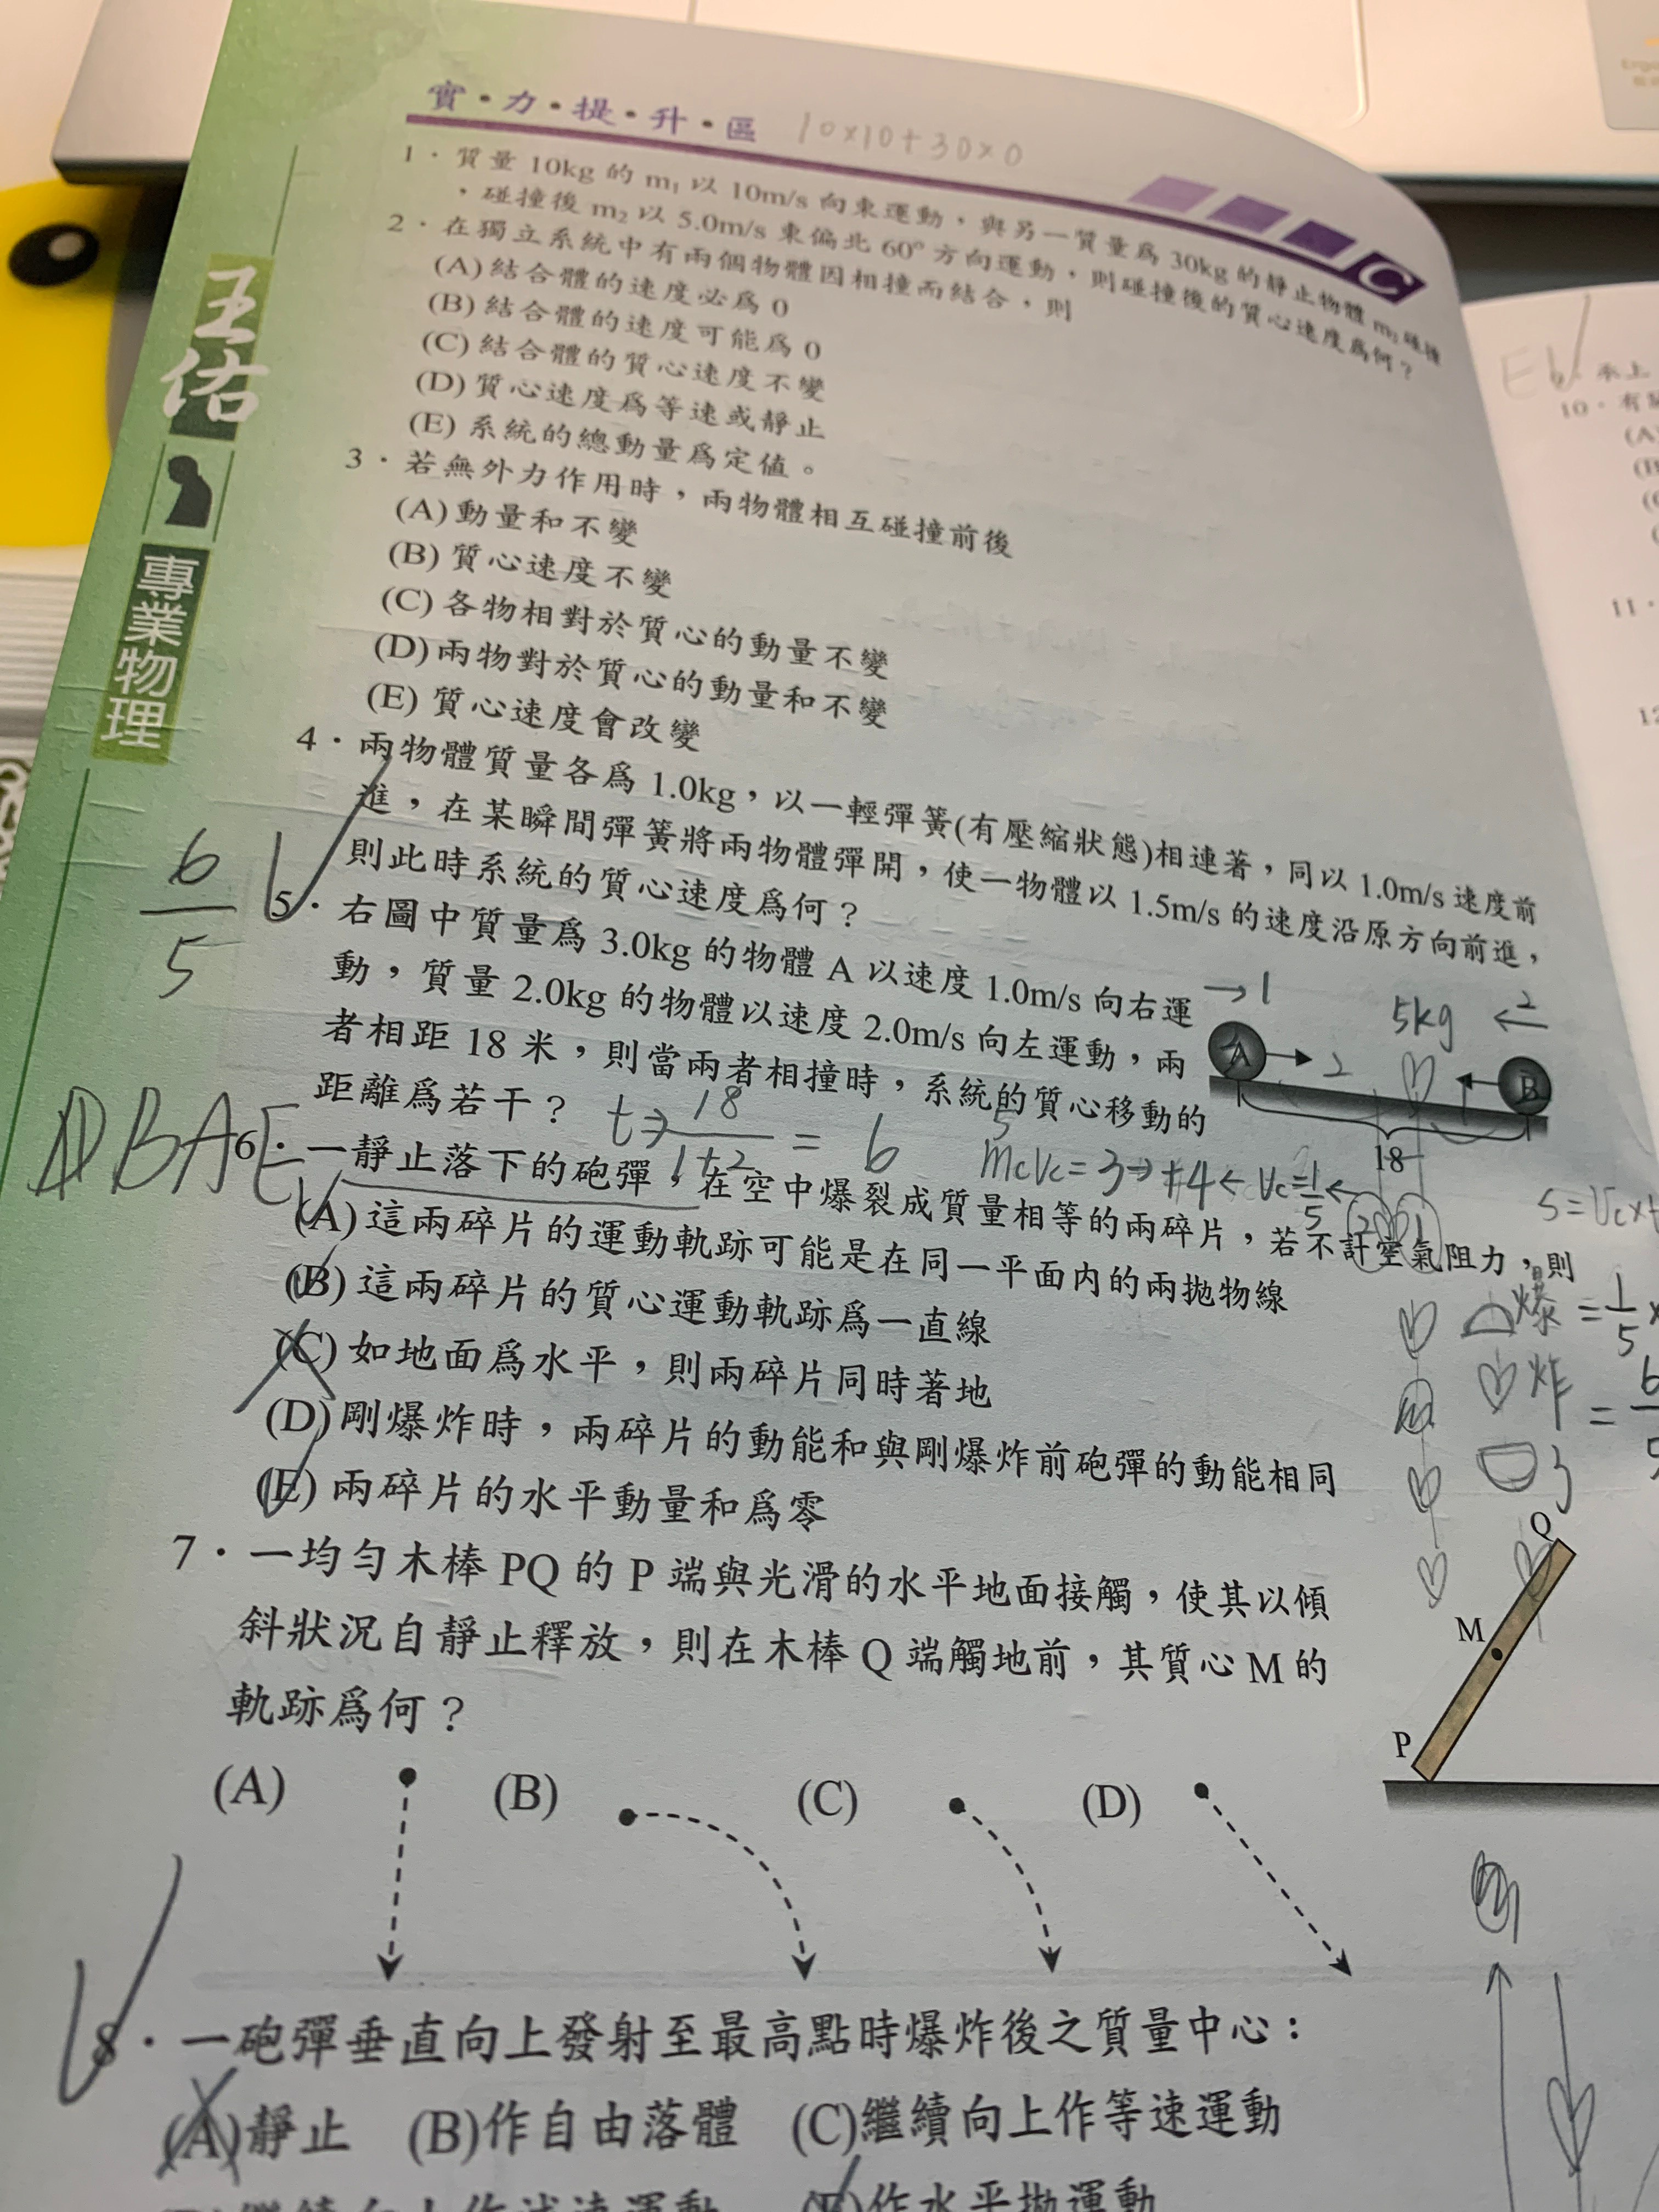 實·力·提·升·區
10×10+30×0
C
1·質量 10kg 的 m₁ 以 10m/s 向東運動，與另一質量為 30kg 的靜止物體 m₂ 碰撞
，碰撞後 m₂ 以 5.0m/s 東偏北 60° 方向運動，則碰撞後的質心速度為何？
2·在獨立系統中有兩個物體因相撞而結合，則
(A)結合體的速度必為 0
(B)結合體的速度可能為 0
(C)結合體的質心速度不變
(D)質心速度為等速或靜止
(E)系統的總動量為定值。
3·若無外力作用時，兩物體相互碰撞前後
(A)動量和不變
(B)質心速度不變
(C)各物相對於質心的動量不變
(D)兩物對於質心的動量和不變
(E)質心速度會改變
4·兩物體質量各為 1.0kg，以一輕彈簧(有壓縮狀態)相連著，同以 1.0m/s 速度前
進，在某瞬間彈簧將兩物體彈開，使一物體以 1.5m/s 的速度沿原方向前進，
則此時系統的質心速度為何？
6/5
5·右圖中質量為 3.0kg 的物體 A 以速度 1.0m/s 向右運
動，質量 2.0kg 的物體以速度 2.0m/s 向左運動，兩
者相距 18 米，則當兩者相撞時，系統的質心移動的
距離為若干？
t⇒18/1+2 = 6
→1
5kg
←2
A
2
B
18
5
mcvc=3→+4←vc=1/5←
DBAE
6·一靜止落下的砲彈，在空中爆裂成質量相等的兩碎片，若不計空氣阻力，則
(A)這兩碎片的運動軌跡可能是在同一平面內的兩拋物線
(B)這兩碎片的質心運動軌跡為一直線
(C)如地面為水平，則兩碎片同時著地
(D)剛爆炸時，兩碎片的動能和與剛爆炸前砲彈的動能相同
(E)兩碎片的水平動量和為零
爆
炸
7·一均勻木棒 PQ 的 P 端與光滑的水平地面接觸，使其以傾
斜狀況自靜止釋放，則在木棒 Q 端觸地前，其質心 M 的
軌跡為何？
Q
M
P
(A) (B) (C) (D)
8·一砲彈垂直向上發射至最高點時爆炸後之質量中心：
(A)靜止 (B)作自由落體 (C)繼續向上作等速運動
作水平拋運動
王佑
專業物理
10·有
11·
12